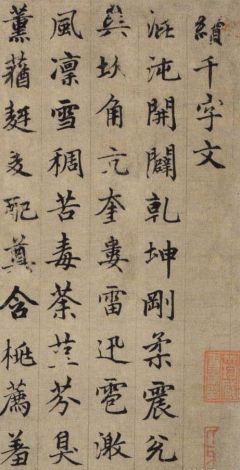 續千字文
混沌開闢乾坤剛柔震兌
巽坎角亢奎婁雷迅雹激
風凛雪稠苦毒荼芬臭
薰蕕配尊含桃薦羞